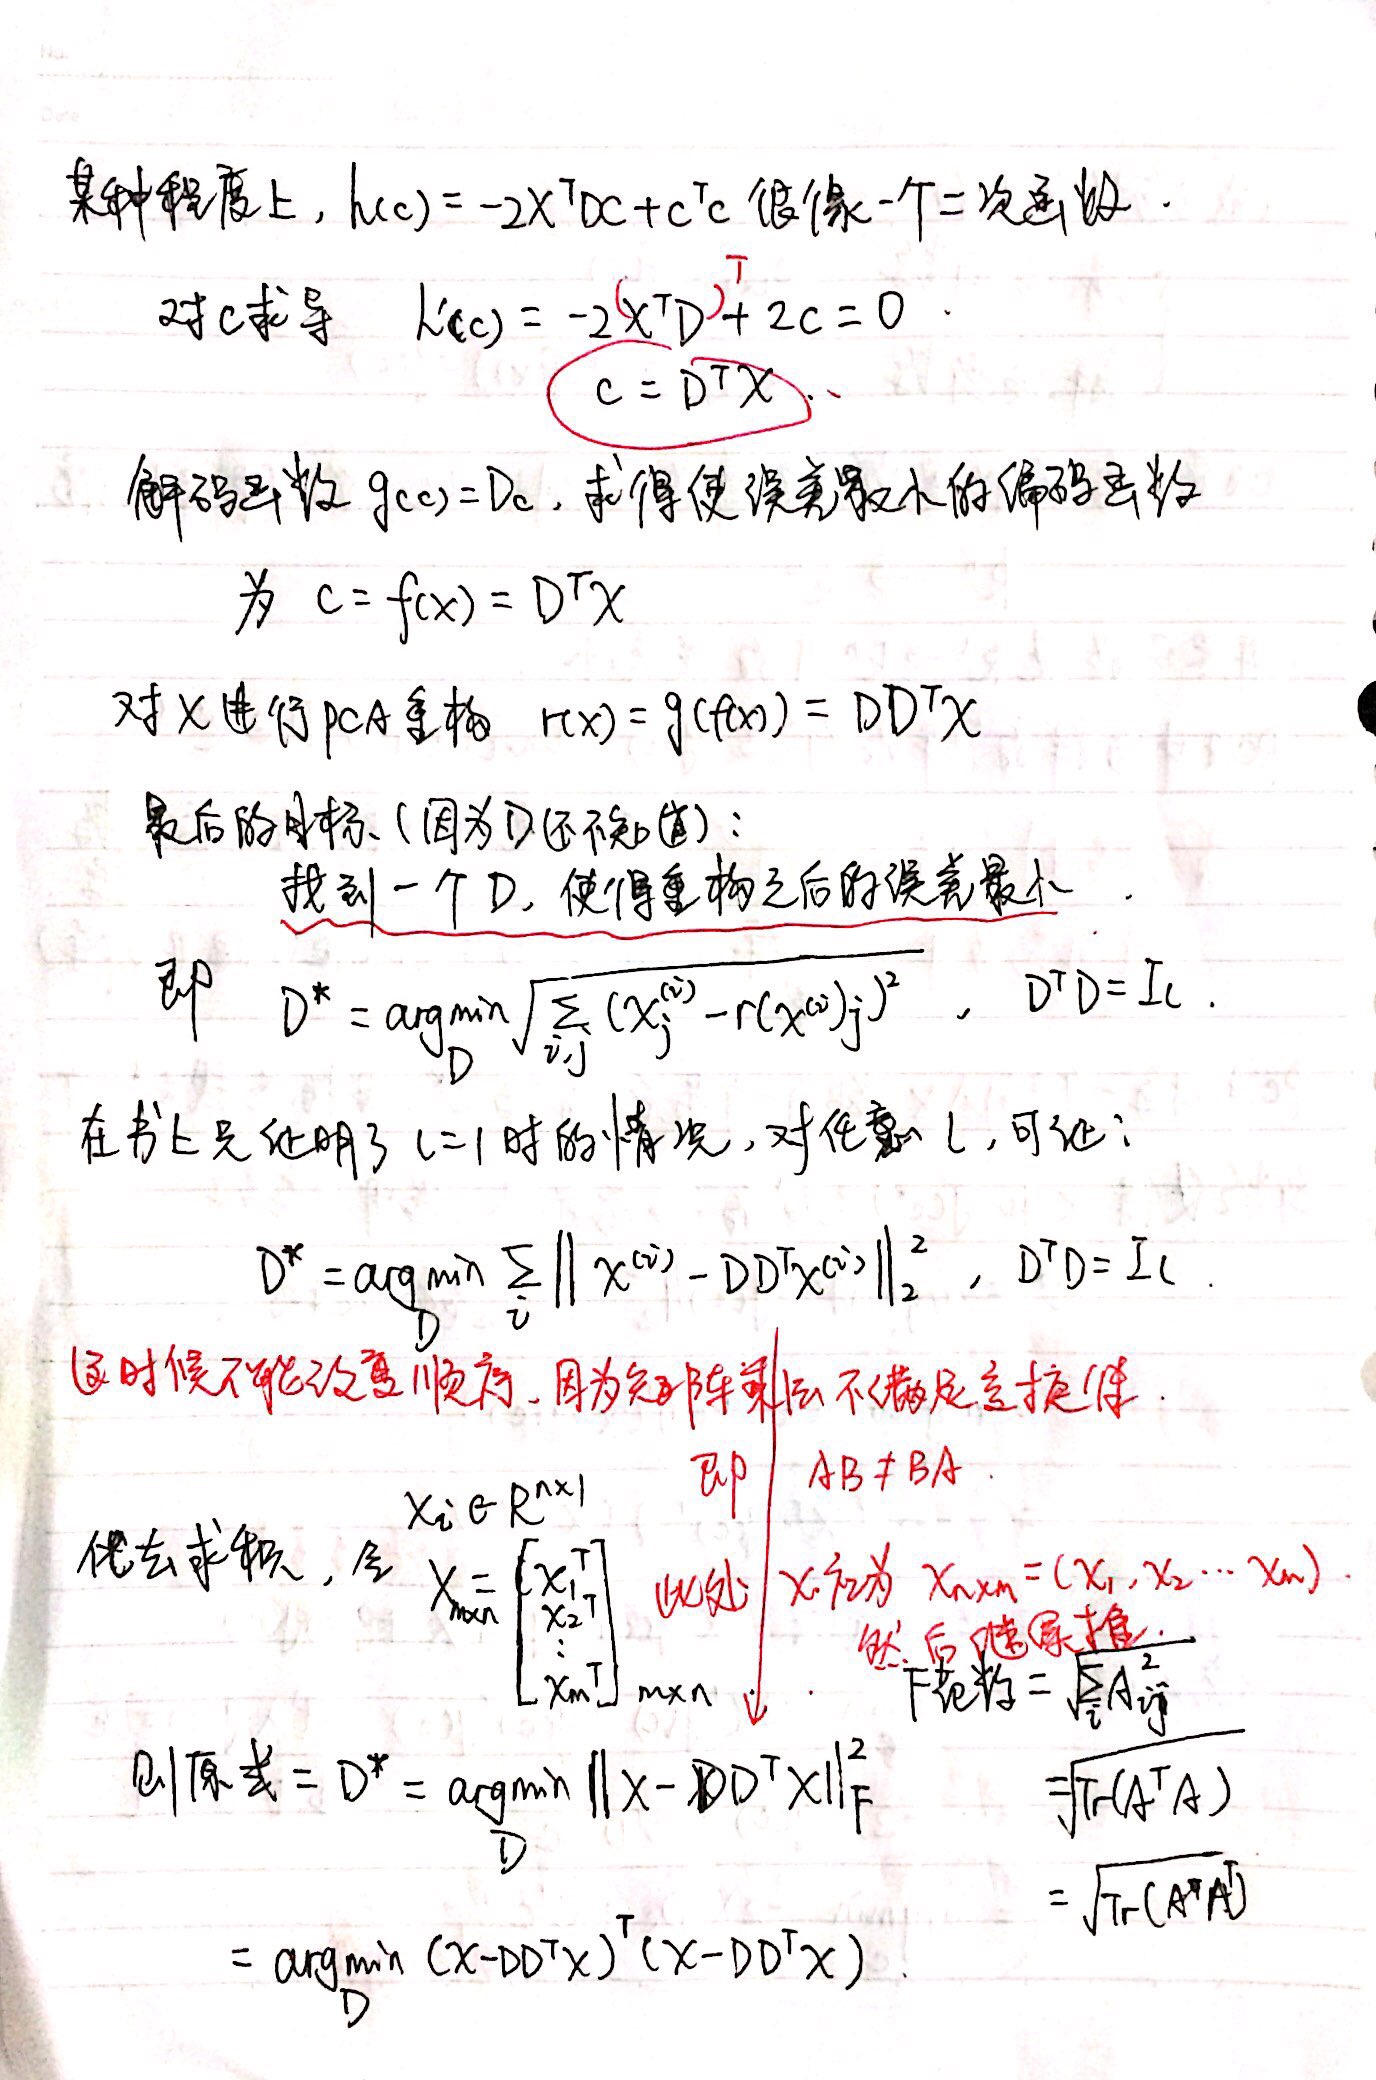 某种程度上，h(c) = -2X^T DC + C^T C 很像一个二次函数．
对c求导 h'(c) = -2(X^T D)^T + 2C = 0．
C = D^T X
解码函数 g(c) = Dc，求得使误差最小的编码函数
为 C = f(x) = D^T X
对X进行PCA重构 r(x) = g(f(x)) = DD^T X
最后的目标（因为D还不知道）：
找到一个D，使得重构之后的误差最小．
即 D* = argmin_D √(∑_{i,j} (x_j^{(i)} - r(x^{(i)})_j)^2)，D^T D = I_l．
在书上只证明了 l=1 时的情况，对任意 l，可证：
D* = argmin_D ∑_i ‖x^{(i)} - DD^T x^{(i)}‖_2^2，D^T D = I_l．
这时候不能改变顺序、因为矩阵乘法不满足交换律．
即 AB ≠ BA．
x_i ∈ R^{n×1}
代去求和，令 X_{m×n} = [x_1^T x_2^T ⋮ x_m^T]_{m×n}
此处 X 应为 X_{n×m} = (x_1, x_2 ⋯ x_m)．
然后继续推．
F范数 = √(∑_i A_{ij}^2)
则原式 = D* = argmin_D ‖X - DD^T X‖_F^2
= √(Tr(A^T A))
= √(Tr(A A^T))
= argmin_D (X - DD^T X)^T (X - DD^T X)．